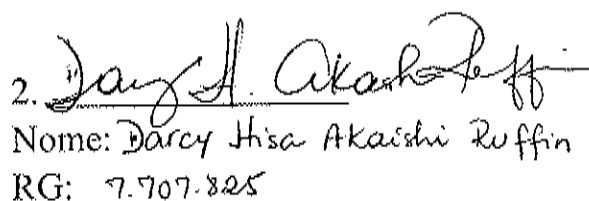 2. Darcy H. Akaishi Ruffin
Nome: Darcy Hisa Akaishi Ruffin
RG: 7.707.825